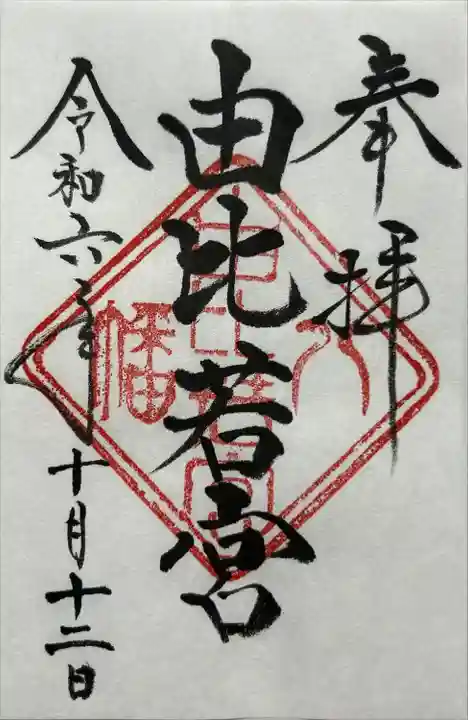 奉拝
由比若宮
八幡
令和六年十月十二日